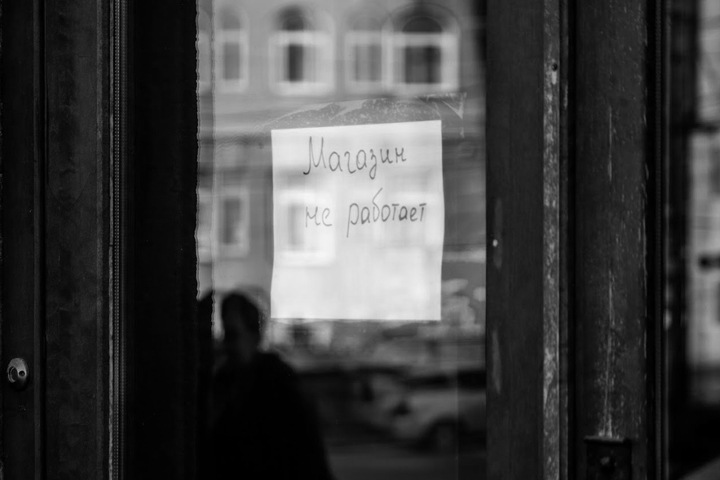 Магазин
не работает